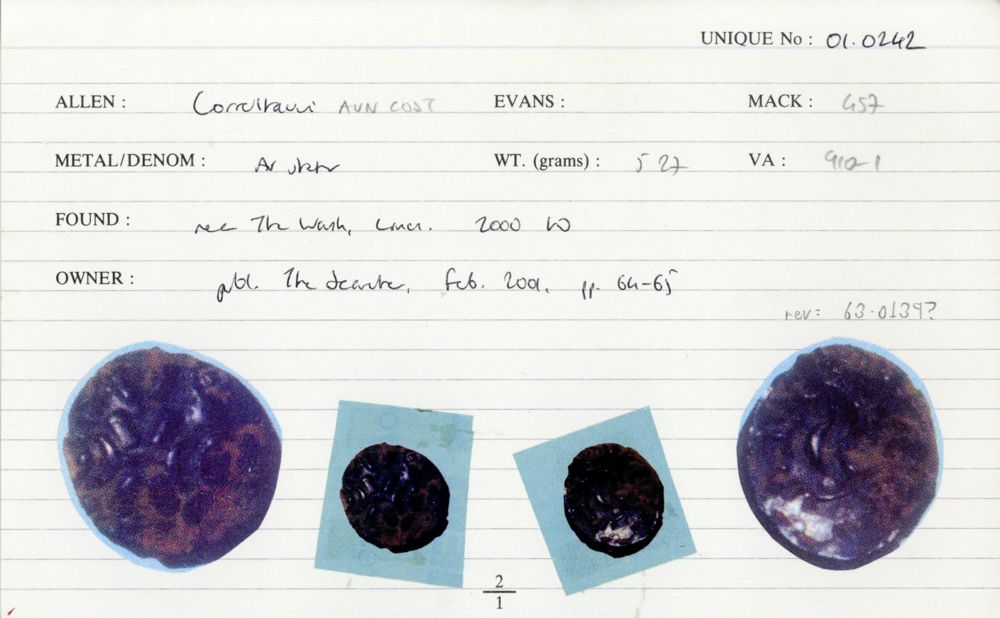 UNIQUE No : 01.0242
ALLEN : Corieltauvi AVN COST EVANS : MACK : 457
METAL/DENOM : AV stater WT. (grams) : 5 27 VA : 910-1
FOUND : near The Wash, Lincs. 2000 LO
OWNER : publ. The Searcher, Feb. 2001, pp. 64-65
rev: 63.0139?
2
1